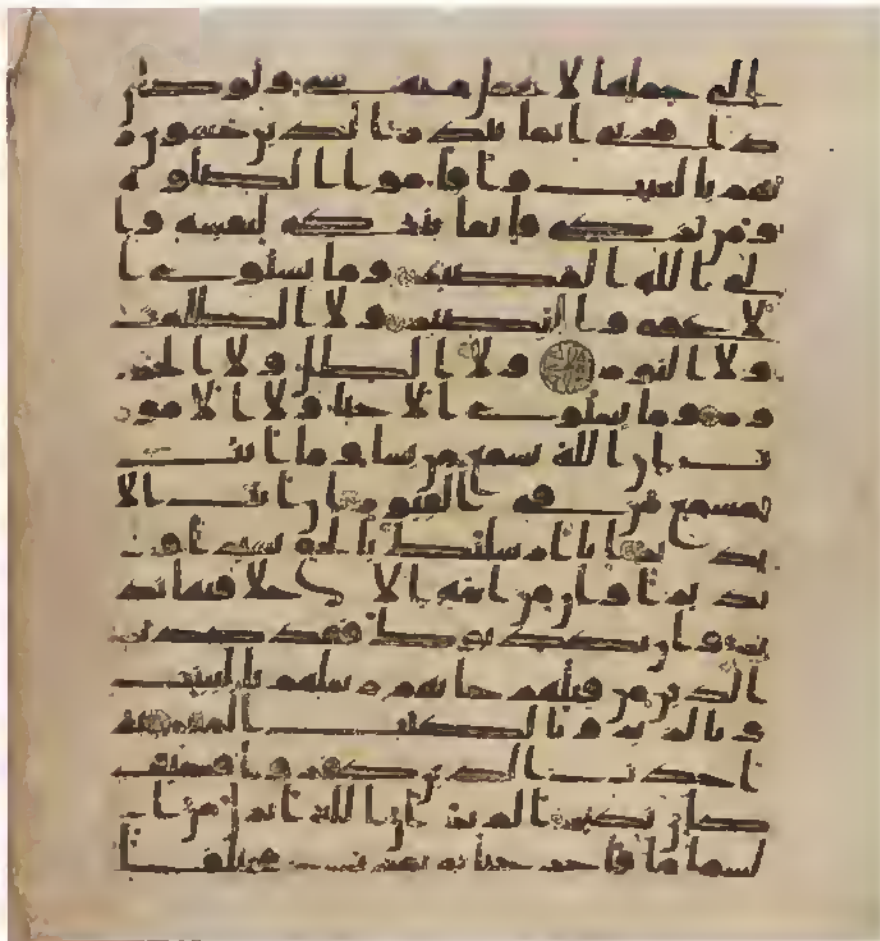 إلى حملها لا يحمل منه شيء ولو كان
ذا قربى إنما تنذر الذين يخشون ر
بهم بالغيب وأقاموا الصلوة
ومن تزكى فإنما يتزكى لنفسه وإ
لى الله المصير وما يستوي ا
لأعمى والبصير ولا الظلمت
ولا النور ولا الظل ولا الحر
ور وما يستوي الأحيا ولا الأموت
إن الله يسمع من يشا وما أنت
بمسمع من في القبور إن أنت إلا
نذير إنا أرسلنك بالحق بشيرا و
نذيرا وإن من أمة إلا خلا فيها نذ
ير وإن يكذبوك فقد كذب
الذين من قبلهم جاتهم رسلهم بالبينت
وبالزبر وبالكتب المنير ثم
أخذت الذين كفروا فكيف
كان نكير ألم تر أن الله أنزل من ا
لسما ما فأخرجنا به ثمرت مختلفا